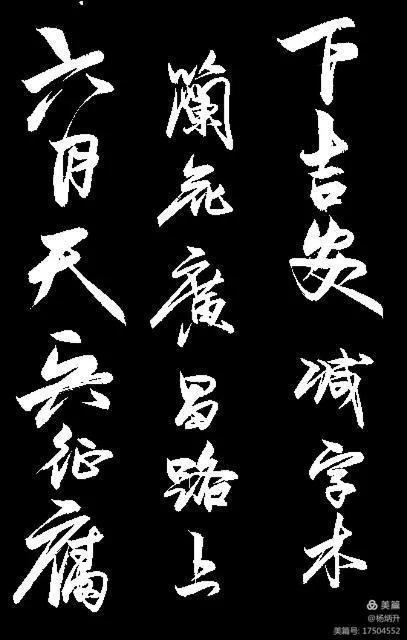 下吉安减字木
蘭花廣昌路上
六月天兵征腐
美篇
@杨炳升
美篇号: 17504552